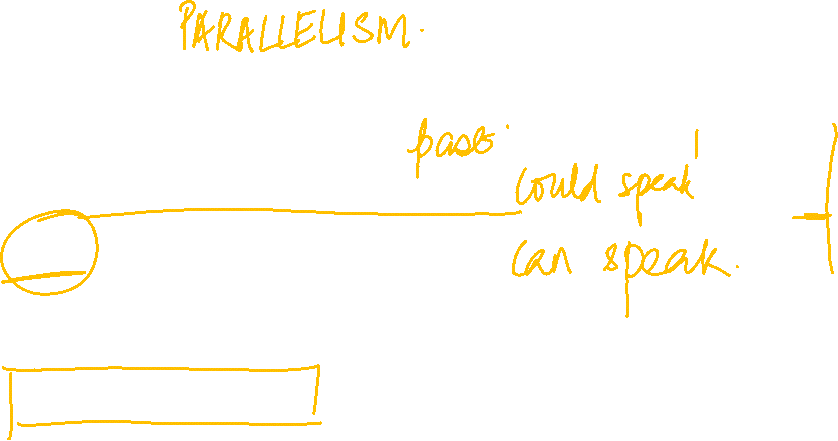 PARALLELISM.
past
could speak
can speak.